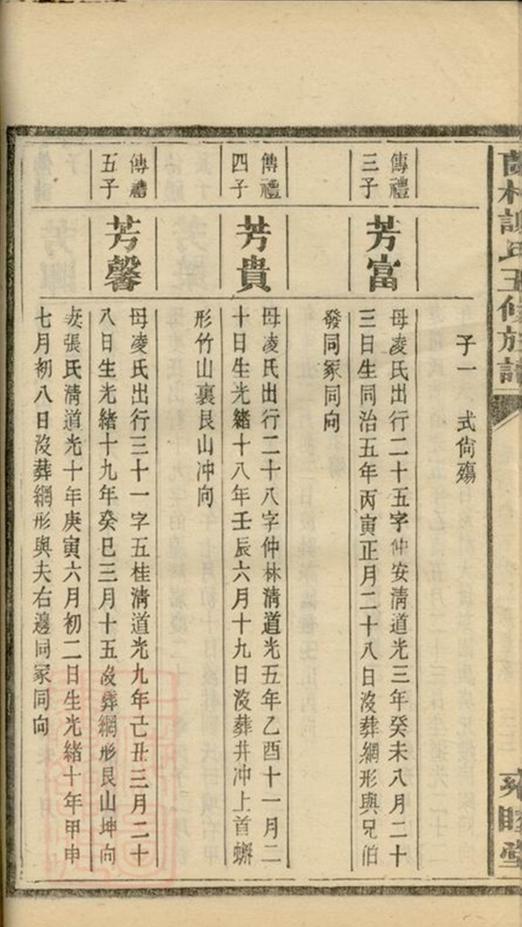 村譚氏五修族譜
雍睦堂
子一　式尙殤
傳禮
三子
芳富
母凌氏出行二十五字仲安淸道光三年癸未八月二十
三日生同治五年丙寅正月二十八日沒葬網形與兄伯
發同冢同向
傳禮
四子
芳貴
母凌氏出行二十八字仲林淸道光五年乙酉十一月二
十日生光緖十八年壬辰六月十九日沒葬井冲上首螄
形竹山裏艮山冲向
傳禮
五子
芳馨
母凌氏出行三十一字五桂淸道光九年己丑三月二十
八日生光緖十九年癸巳三月十五沒葬網形艮山坤向
妻張氏淸道光十年庚寅六月初二日生光緖十年甲申
七月初八日沒葬網形與夫右邊同冢同向